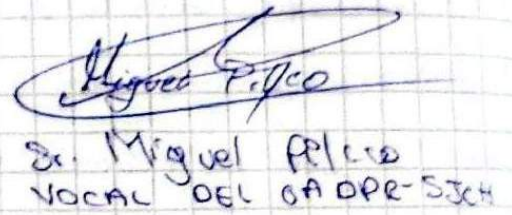 Miguel Pilco
Sr. Miguel Pilco
VOCAL DEL GADPR-SJCH